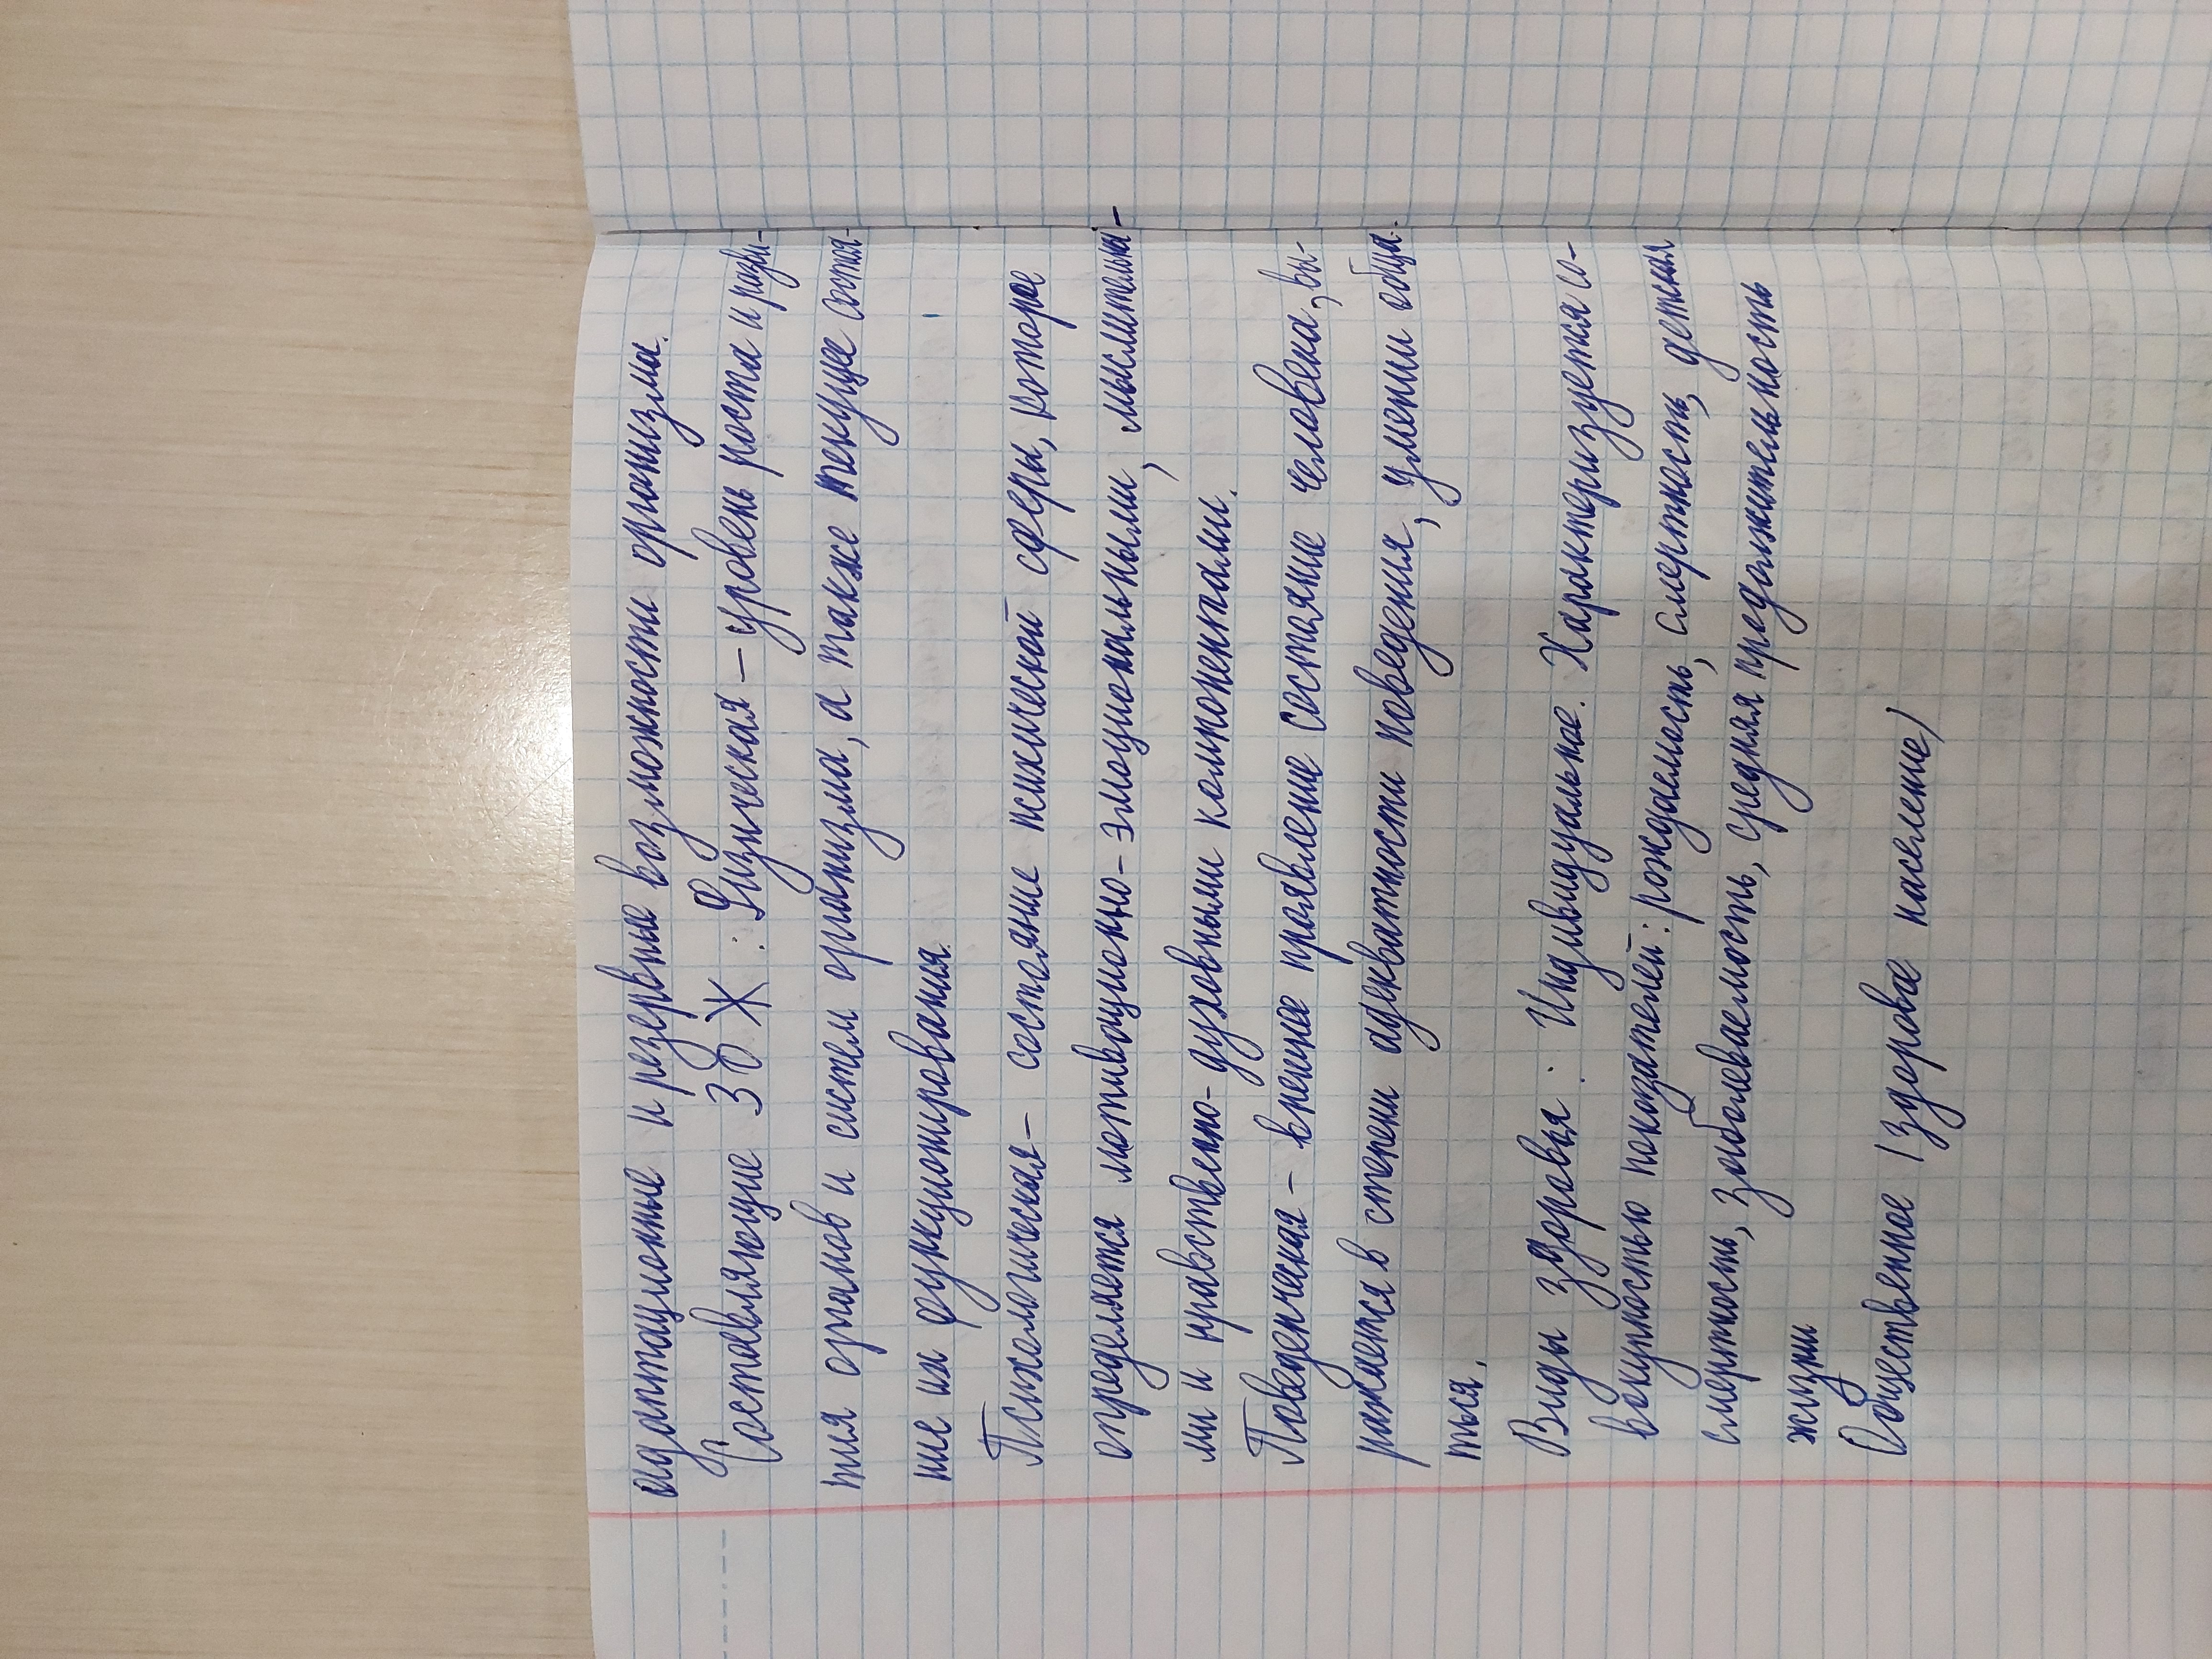 адаптационные и резервные возможности организма.
Составляющие ЗОЖ: Физическая – уровень роста и разви-
тия органов и систем организма, а также текущее состоя-
ние их функционирования.
Психологическая – состояние психической сферы, которое
определяется мотивационно-эмоциональными, мыслительны-
ми и нравственно-духовными компонентами.
Поведенческая – внешнее проявление состояние человека, вы-
ражается в степени адекватности поведения, умении обща-
ться.
Виды здоровья: Индивидуальное. Характеризуется со-
вокупностью показателей: рождаемость, смертность, детская
смертность, заболеваемость, средняя предолжительность
жизни
Общественное (здоровое население)